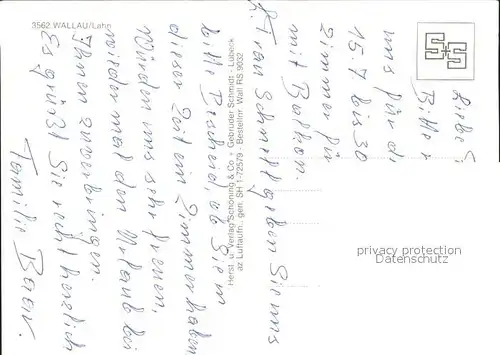 3562 WALLAU/Lahn
Liebe
Bitte
uns für d.
15.7 bis 30
Zimmer für
mit Balkon.
Frau Schmelt geben Sie uns
bitte Bescheid, ob Sie in
dieser Zeit ein Zimmer haben
Würden uns sehr freuen,
wieder mal den Urlaub bei
Ihnen zu verbringen.
Es grüßt Sie recht herzlich
Familie
Herst. u. Verlag Schöning & Co + Gebrüder Schmidt - Lübeck
az Luftaufn., gen. SH 1-72579 - Bestellnr. Wall RS 9032
privacy protection
Datenschutz